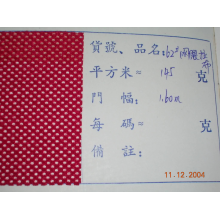 貨號、品名:62#閃龍絲布
平方米= 145 克
門 幅: 1.60m
每 碼= 克
備 註:
11.12.2004